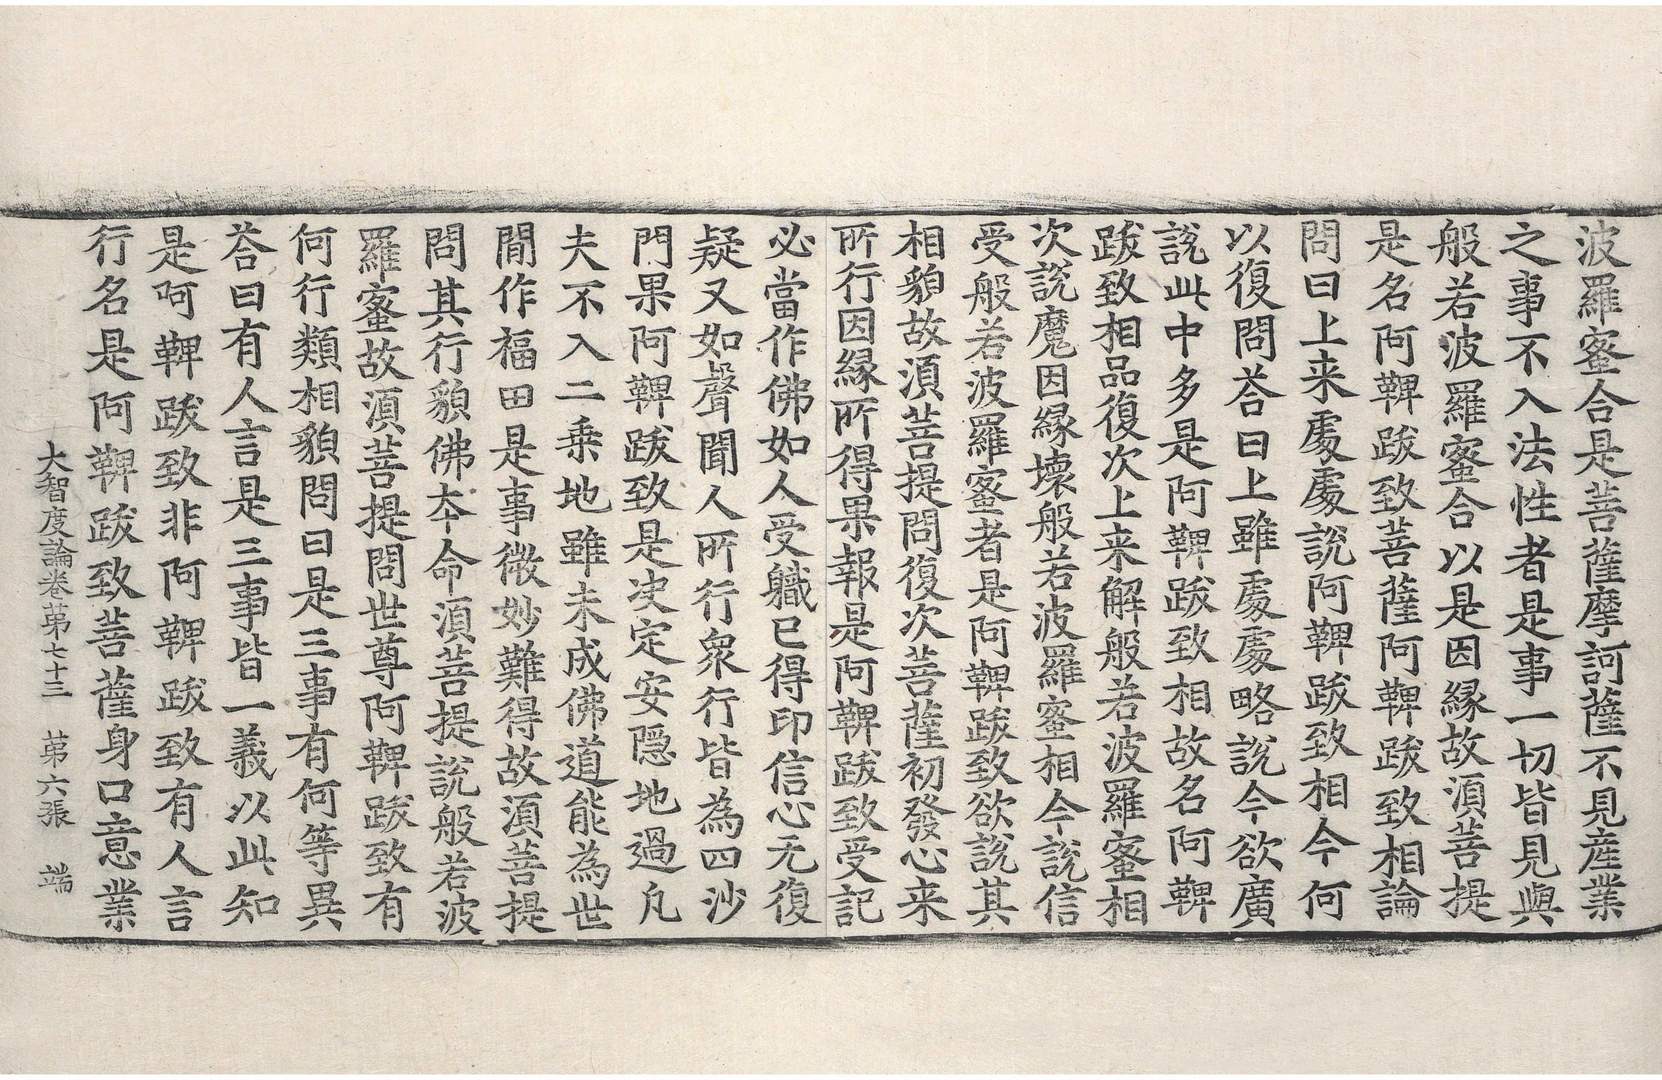 波羅蜜合是菩薩摩訶薩不見產業
之事不入法性者是事一切皆見與
般若波羅蜜合以是因緣故湏菩提
是名阿鞞跋致菩薩阿鞞跋致相論
問曰上来處處說阿鞞跋致相今何
以復問荅曰上雖處處略說今欲廣
說此中多是阿鞞跋致相故名阿鞞
跋致相品復次上来解般若波羅蜜相
次說魔因緣壞般若波羅蜜相今說信
受般若波羅蜜者是阿鞞跋致欲說其
相貌故湏菩提問復次菩薩初發心来
所行因緣所得果報是阿鞞跋致受記
必當作佛如人受職已得印信心无復
疑又如聲聞人所行衆行皆為四沙
門果阿鞞跋致是決定安隱地過凡
夫不入二乗地雖未成佛道能為世
間作福田是事微妙難得故湏菩提
問其行貌佛夲命湏菩提說般若波
羅蜜故湏菩提問世尊阿鞞跋致有
何行類相貌問曰是三事有何等異
荅曰有人言是三事皆一義以此知
是阿鞞跋致非阿鞞跋致有人言
行名是阿鞞跋致菩薩身口意業
大智度論卷苐七十三 苐六張 端